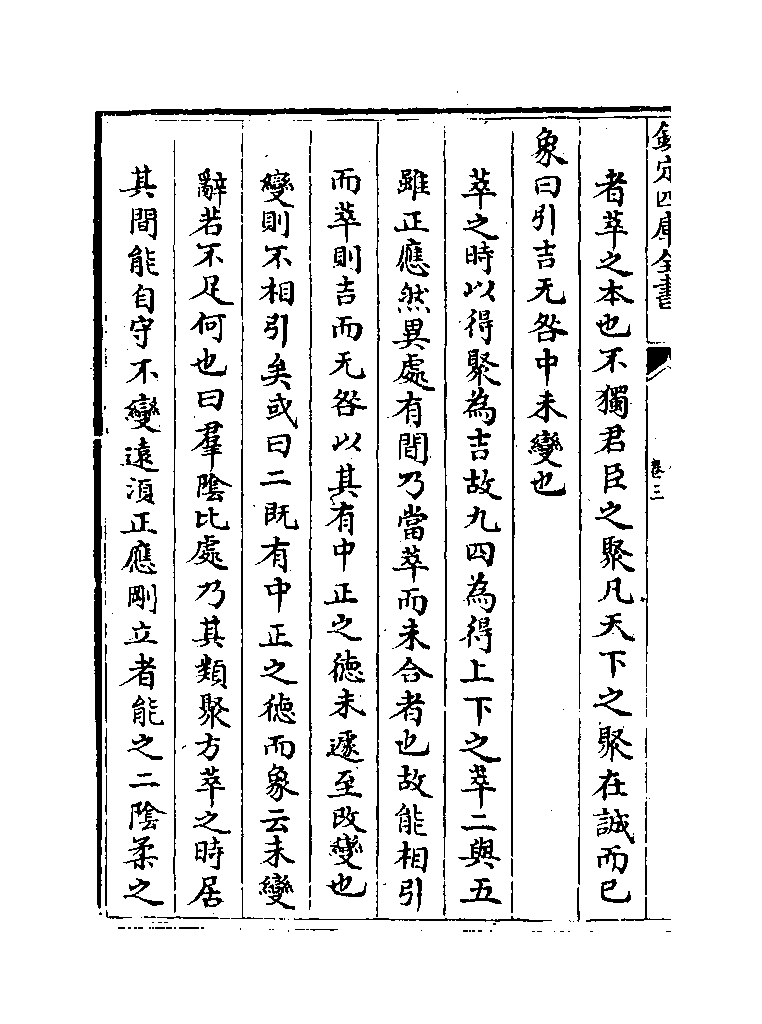 欽定四庫全書
卷三
者萃之本也不獨君臣之聚凡天下之聚在誠而已
象曰引吉无咎中未變也
萃之時以得聚為吉故九四為得上下之萃二與五
雖正應然異處有間乃當萃而未合者也故能相引
而萃則吉而无咎以其有中正之德未遽至改變也
變則不相引矣或曰二既有中正之德而象云未變
辭若不足何也曰羣陰比處乃其類聚方萃之時居
其間能自守不變遠湏正應剛立者能之二陰柔之